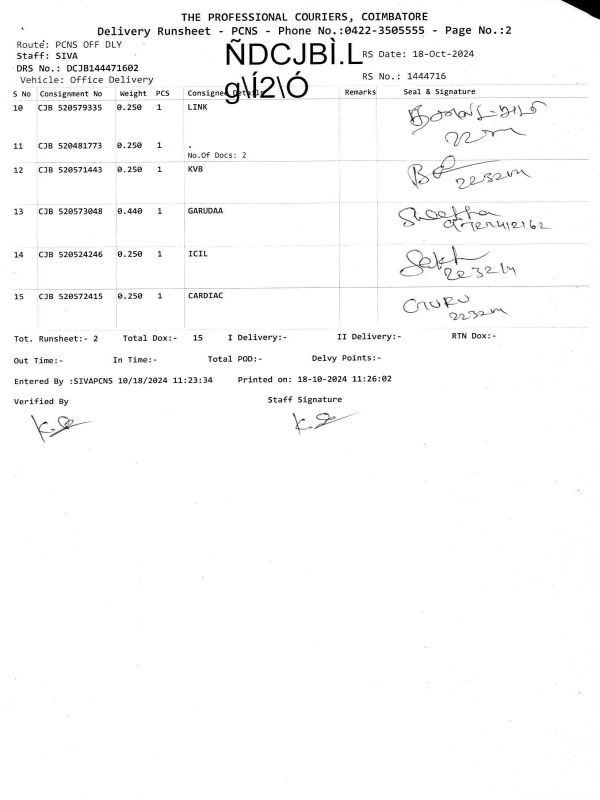 THE PROFESSIONAL COURIERS, COIMBATORE
Delivery Runsheet - PCNS - Phone No.:0422-3505555 - Page No.:2
Route: PCNS OFF DLY
Staff: SIVA
ÑDCJBÌ.L
RS Date: 18-Oct-2024
DRS No.: DCJB144471602
Vehicle: Office Delivery
g\Í2\Ó
RS No.: 1444716
S No Consignment No Weight PCS Consignee Details Remarks Seal & Signature
10 CJB 520579335 0.250 1 LINK
11 CJB 520481773 0.250 1 .
No.Of Docs: 2
12 CJB 520571443 0.250 1 KVB
13 CJB 520573048 0.440 1 GARUDAA
14 CJB 520524246 0.250 1 ICIL
15 CJB 520572415 0.250 1 CARDIAC GURU
Tot. Runsheet:- 2 Total Dox:- 15 I Delivery:- II Delivery:- RTN Dox:-
Out Time:- In Time:- Total POD:- Delvy Points:-
Entered By :SIVAPCNS 10/18/2024 11:23:34 Printed on: 18-10-2024 11:26:02
Verified By Staff Signature